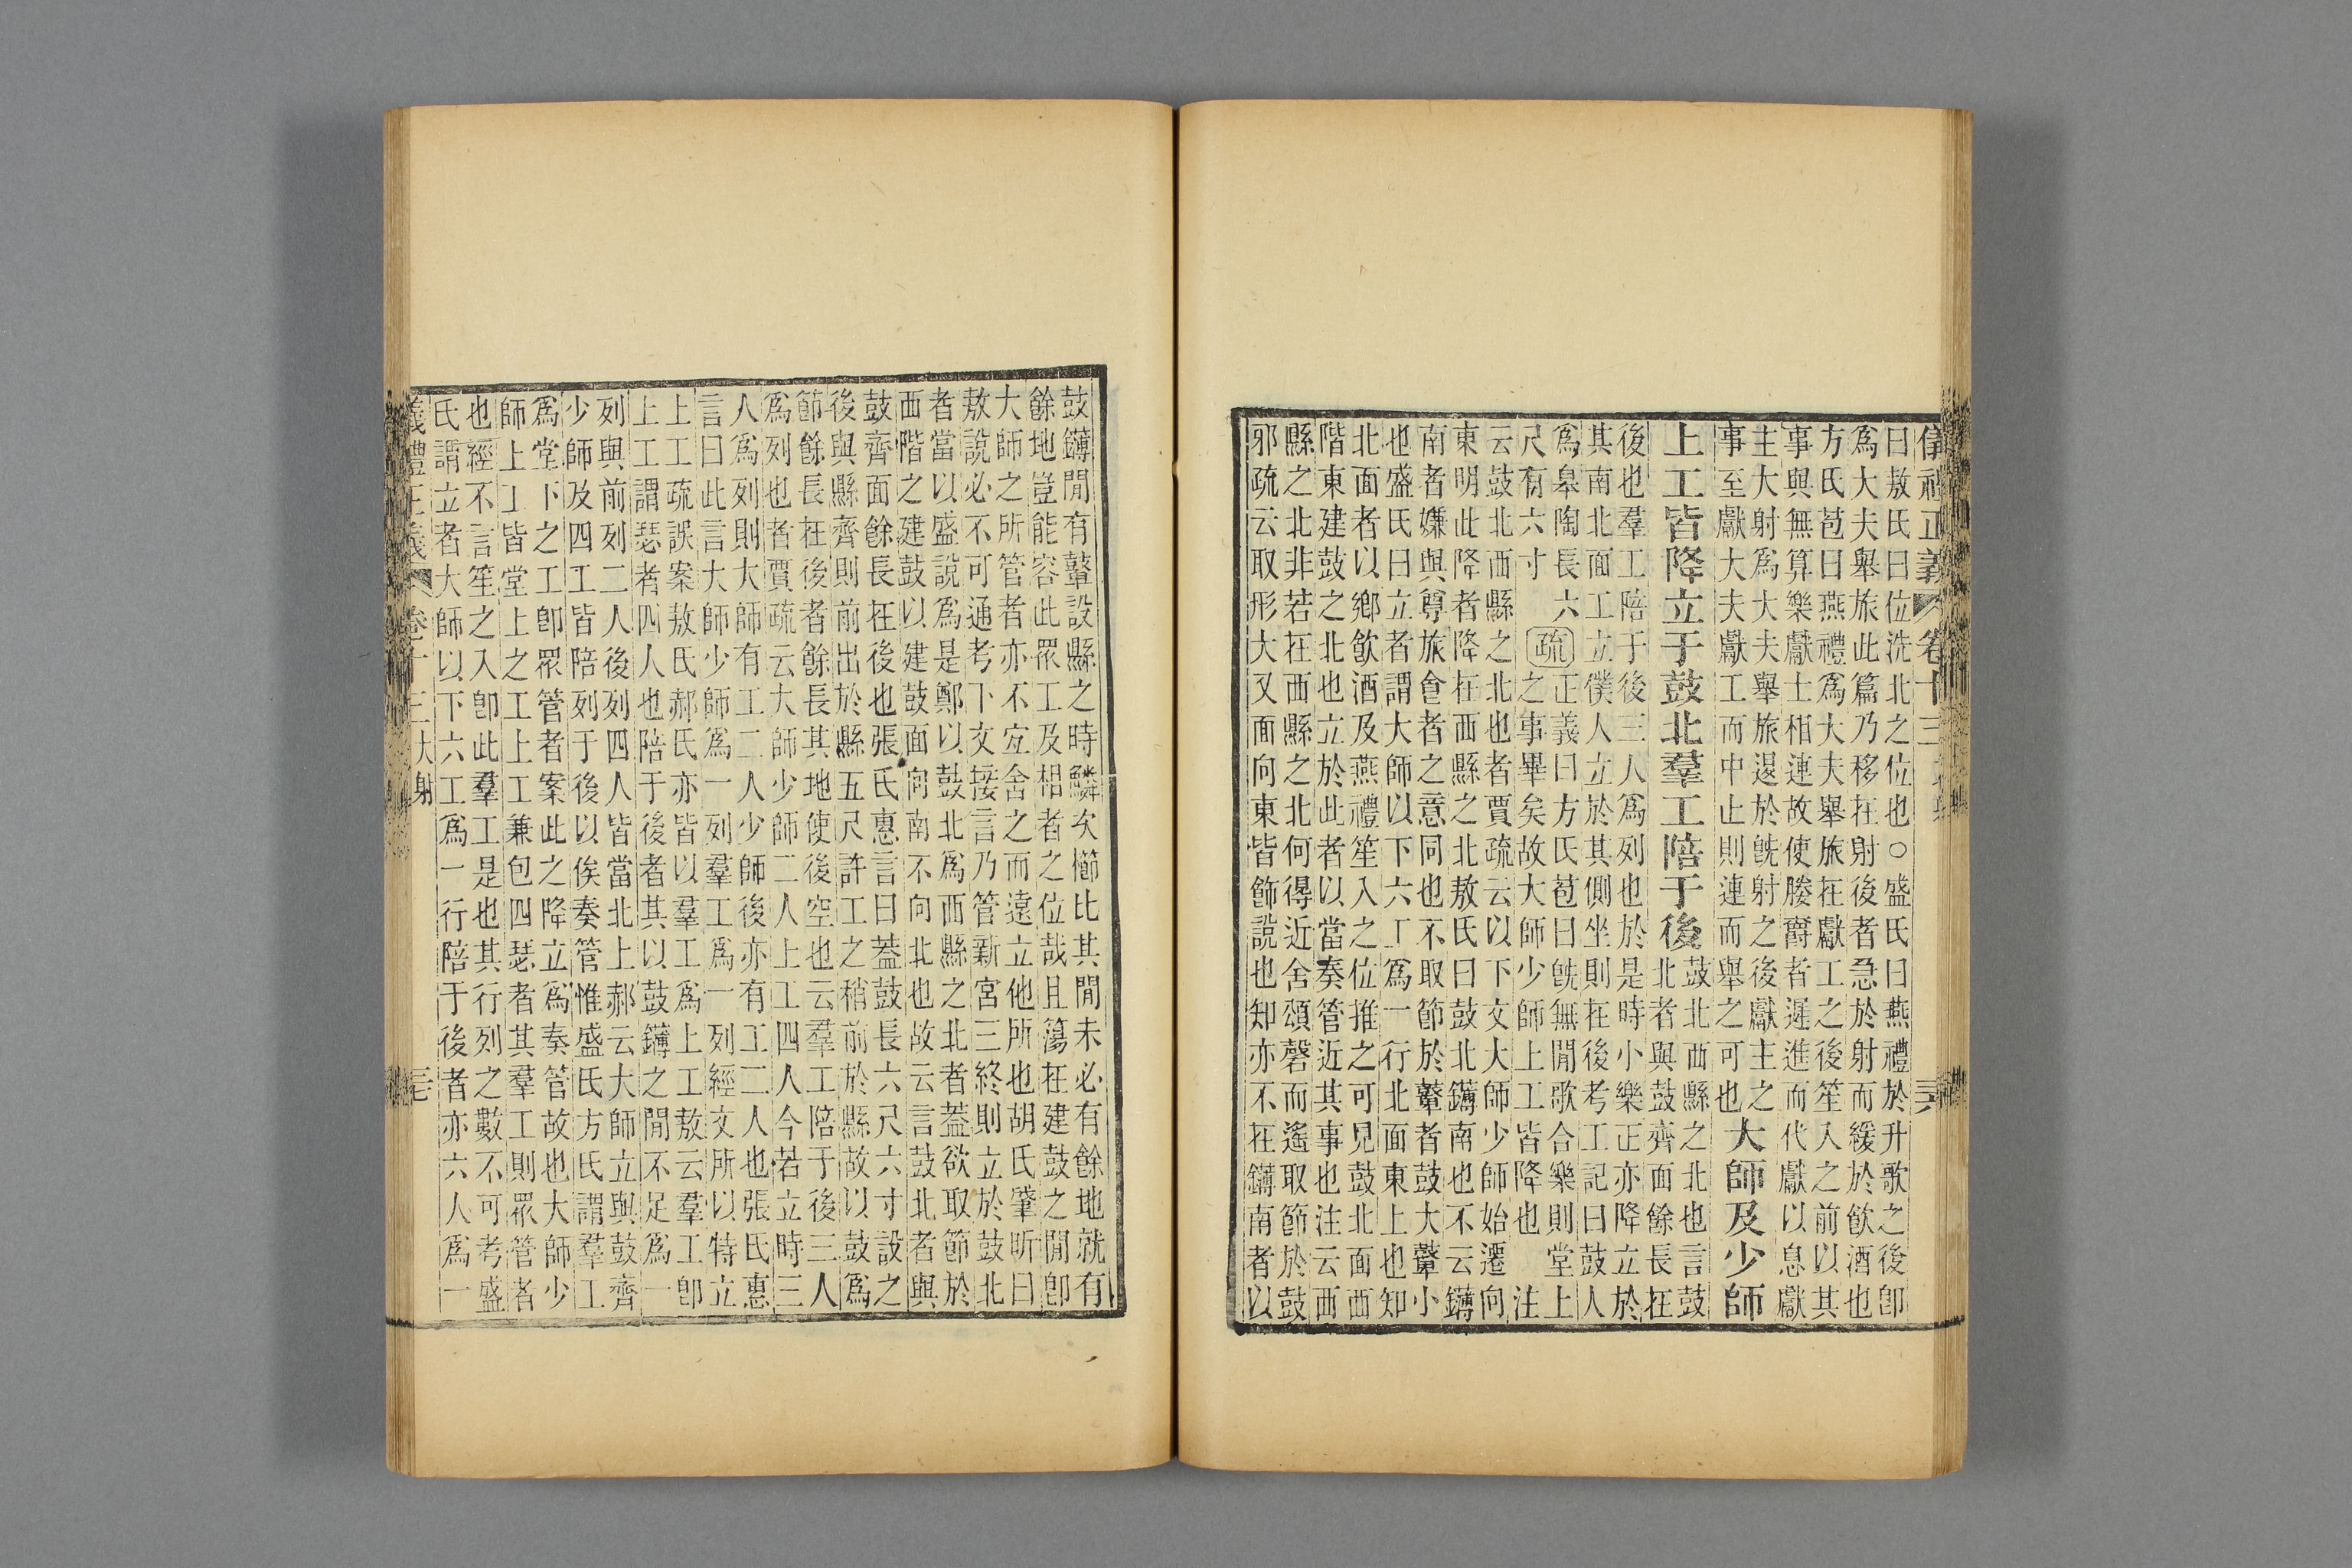 儀禮正義 卷十三 三六
曰敖氏曰位洗北之位也○盛氏曰燕禮於升歌之後卽
爲大夫舉旅此篇乃移在射後者急於射而緩於飮酒也
方氏苞曰燕禮爲大夫舉旅在獻工之後笙入之前以其
事與無算樂獻士相連故使媵爵者遲進而代獻以息獻
主大射爲大夫舉旅退於旣射之後獻主之
事至獻大夫獻工而中止則連而舉之可也
大師及少師
上工皆降立于鼓北羣工陪于後
鼓北西縣之北也言鼓
北者與鼓齊面餘長在
後也羣工陪于後三人爲列也於是時小樂正亦降立於
其南北面工立僕人立於其側坐則在後考工記曰鼓人
爲皋陶長六
尺有六寸
疏
正義曰方氏苞曰旣無閒歌合樂則堂上
之事畢矣故大師少師上工皆降也 注
云鼓北西縣之北也者賈疏云以下文大師少師始遷向
東明此降者降在西縣之北敖氏曰鼓北鑮南也不云鑮
南者嫌與尊旅會者之意同也不取節於鼙者鼓大鼙小
也盛氏曰立者謂大師以下六工爲一行北面東上也知
北面者以鄉飮酒及燕禮笙入之位推之可見鼓北面西
階東建鼓之北也立於此者以當奏管近其事也注云西
縣之北非若在西縣之北何得近舍頌磬而遙取節於鼓
邪疏云取形大又面向東皆飾說也知亦不在鑮南者以
鼓鑮閒有鼙設縣之時鱗次櫛比其閒未必有餘地就有
餘地豈能容此眾工及相者之位哉且簜在建鼓之閒卽
大師之所管者亦不宜舍之而遠立他所也胡氏肇昕曰
敖說必不可通考下文接言乃管新宮三終則立於鼓北
者當以盛說爲是鄭以鼓北爲西縣之北者蓋欲取節於
西階之建鼓以建鼓面向南不向北也故云言鼓北者與
鼓齊面餘長在後也張氏惠言曰蓋鼓長六尺六寸設之
後與縣齊則前出於縣五尺許工之稍前於縣故以鼓爲
節餘長在後者餘長其地使後空也云羣工陪于後三人
爲列也者賈疏云大師少師二人上工四人今若立時三
人爲列則大師有工二人少師後亦有工二人也張氏惠
言曰此言大師少師爲一列羣工爲一列經文所以特立
上工疏誤案敖氏郝氏亦皆以羣工爲上工敖云羣工卽
上工謂瑟者四人也陪于後者其以鼓鑮之閒不足爲一
列與前列二人後列四人皆當北上郝云大師立與鼓齊
少師及四工皆陪列于後以俟奏管惟盛氏方氏謂羣工
爲堂下之工卽眾管者案此之降立爲奏管故也大師少
師上工皆堂上之工上工兼包四瑟者其羣工則眾管者
也經不言笙之入卽此羣工是也其行列之數不可考盛
氏謂立者大師以下六工爲一行陪于後者亦六人爲一
儀禮正義 卷十三 大射